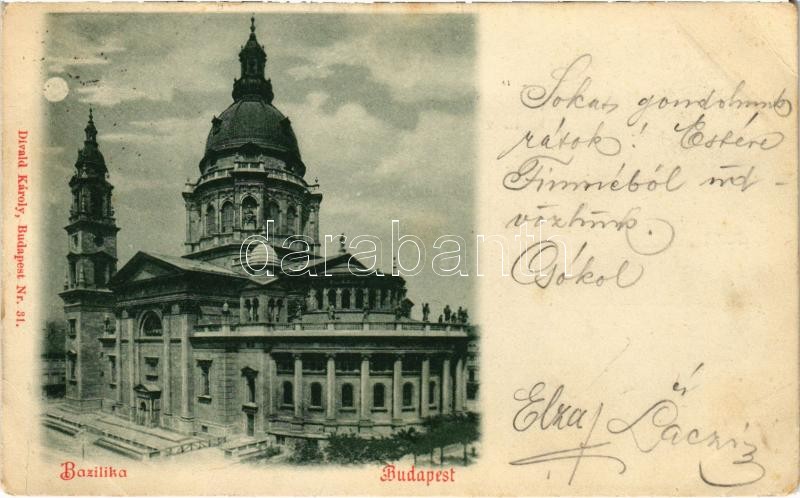 Divald Károly, Budapest Nr. 31.
Sokat gondolunk
rátok! Estére
Fiuméból üd-
vözlünk.
Csókol
Elza és Laczi
darabanth.com
Bazilika
Budapest